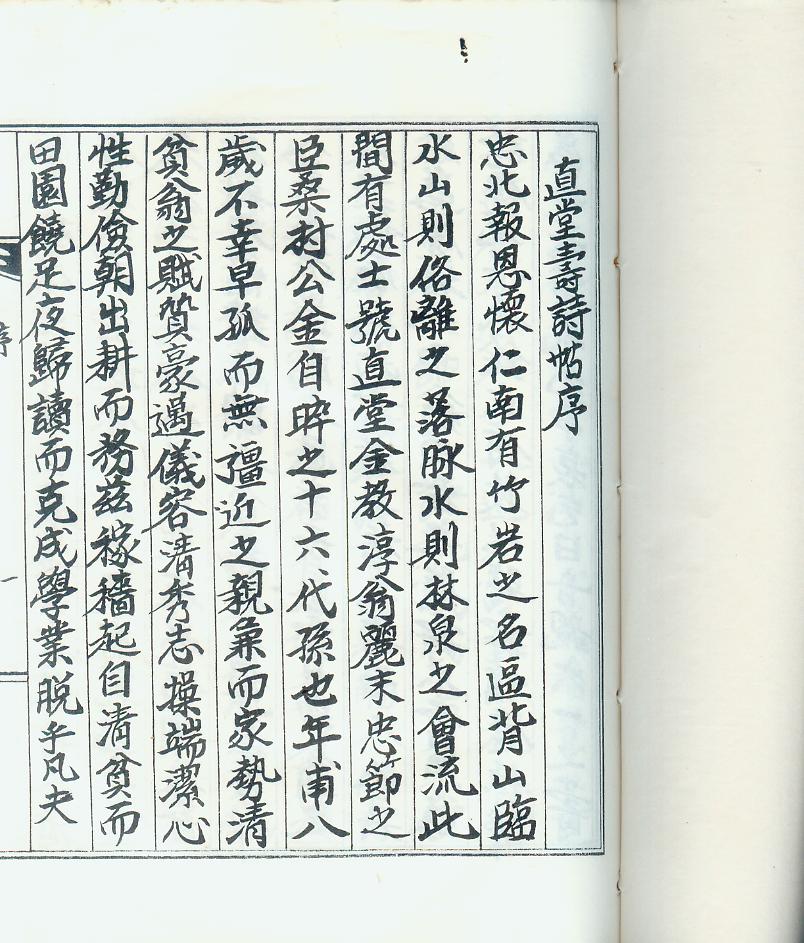 直堂壽詩帖序
忠北報恩懷仁南有竹岩之名區背山臨
水山則俗離之落脉水則林泉之會流此
間有處士號直堂金敎淳翁麗末忠節之
臣桑村公金自晬之十六代孫也年甫八
歲不幸早孤而無彊近之親兼而家勢淸
貧翁之賦質豪邁儀容淸秀志操端潔心
性勤儉朝出耕而務玆稼穡起自淸貧而
田園饒足夜歸讀而克成學業脫乎凡夫
序
一